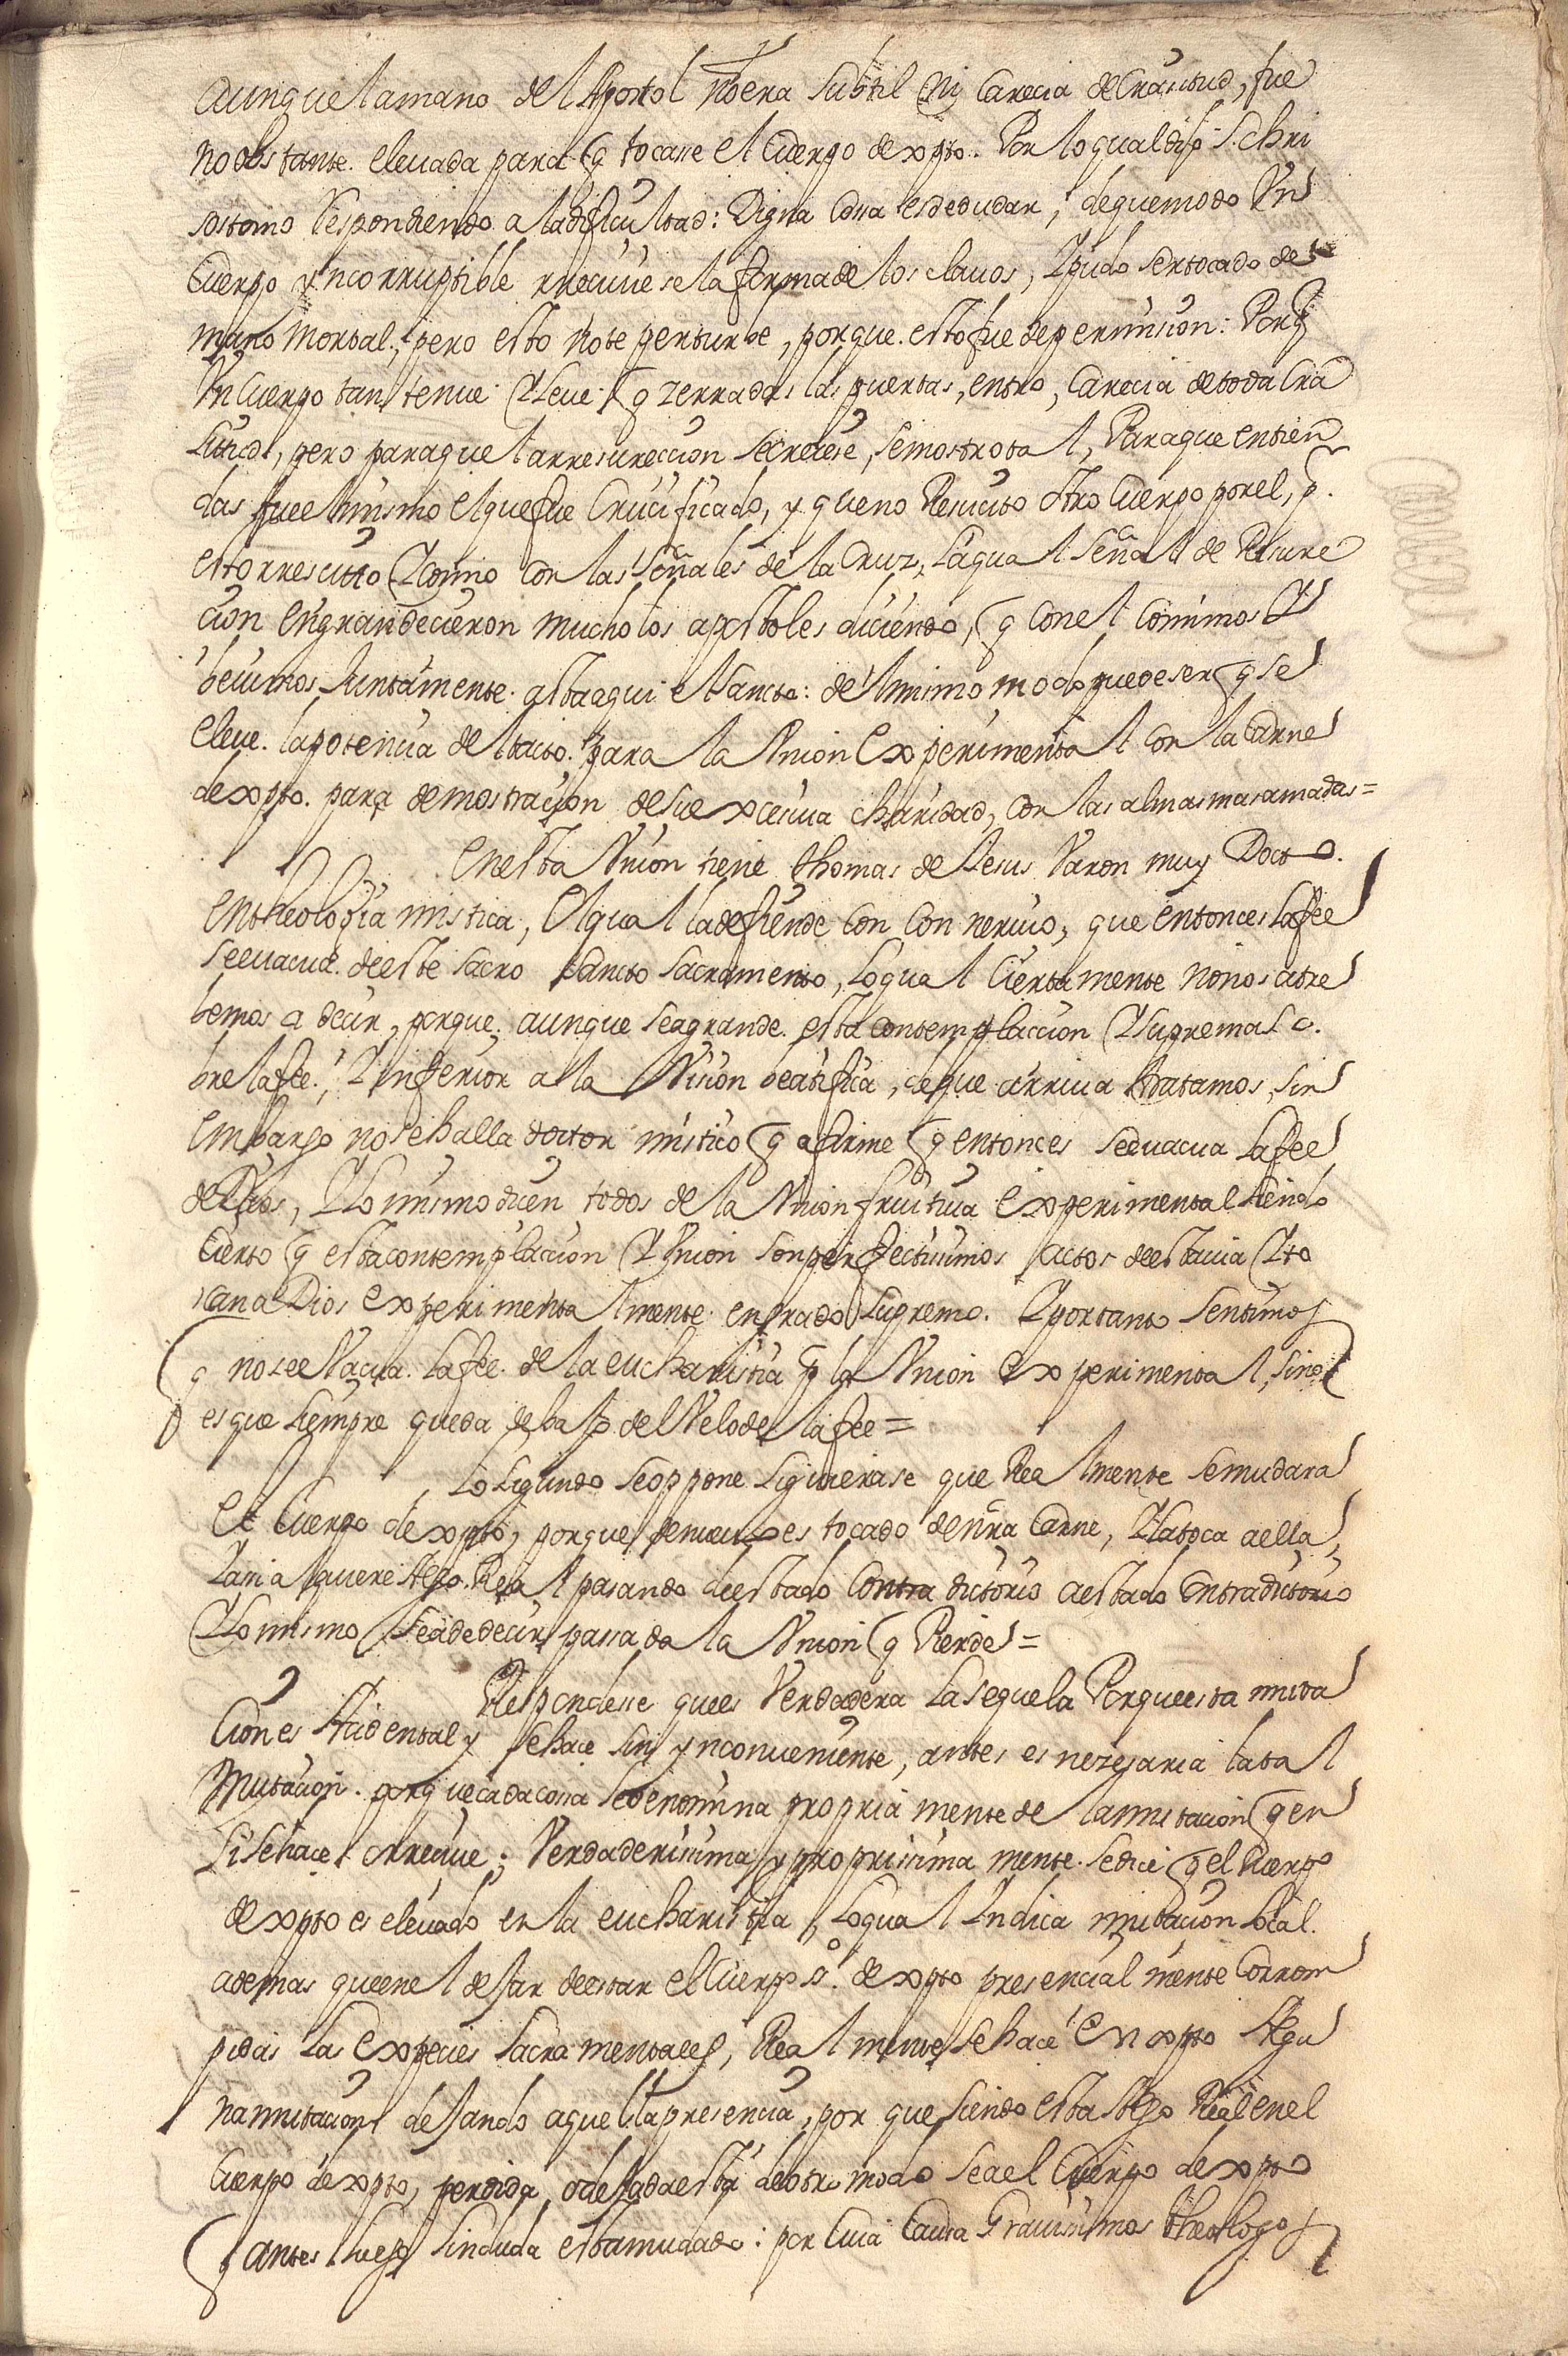 aunque la mano del Apostol no era subtil ni carecia de Crasitud, fue
no obstante elevada para q tocasse el Cuerpo de xpto. Por lo qual dijo S. Chri
sostomo Respondiendo a la dificultad: Digna cossa es de dudar, de que modo Un
Cuerpo yncorruptible rreciuiese la forma de los clauos, Y pudo ser tocado de
mano mortal; pero esto no te perturbe, porque esto fue de permission: Porq
Un Cuerpo tan tenue Y leue q zerradas las puertas, entro, Carecia de toda Cra
situd, pero para que la rresureccion se creiese, se mostro tal, Para que entien
das fue el mismo el que fue Crucificado, y que no Resucito otro Cuerpo por el, p.
esto rresucito Y comio con las señales de la Cruz, la qual señal de Resure
cion engrandecieron mucho los apostoles diciendo, q con el comimos Y
beuimos Juntamente. asta aqui el Sancto: del mismo modo puede ser q se
eleue la potencia del tacto para la Union Experimental con la Carne
de xpto. para demostracion de su excesiua charidad, con las almas mas amadas=
En esta Union tiene thomas de Jesus Varon muy Docto.
en theologia mistica, el qual la defiende con con neruio, que entonces la fee
se euacua de este sacro Sancto Sacramento, lo qual ciertamente no nos atre
bemos a decir, porque aunque sea grande esta contemplaccion Y suprema so.
bre la fee, Y inferior a la Vision beatifica, de que arriua tratamos, sin
embargo no se halla doctor mistico q afirme q entonces se euacua la fee
de Dios, Y lo mismo dicen todos de la Union fruitiua experimental siendo
cierto q esta contemplaccion Y Union son perfectissimos actos de esta uia Y to
can a Dios experimentalmente en grado supremo. Y por tanto sentimos
q no se euacua la fee de la eucharistia p la Union experimental, sino
es que siempre queda debajo del Velo de la fee=
Lo segundo se oppone siguierase que Realmente se mudara
el Cuerpo de xpto, porque es tocado de nra Carne, Y la toca a ella,
Real pasando de estado Contradictorio a estado Contradictorio
Y lo mismo se a de decir passada la Union q Pierde=
Respondesse que es Verdadera la sequela Porque esta muta
cion es Acidental y se hace sin ynconueniente, antes es nezesaria la tal
mutacion. porque cada cossa se denomina propriamente de la mutacion q en
si se hace o rreciue; Verdaderisima y proprissimamente se dice q el Cuerpo
de xpto es eleuado en la eucharistia, lo qual Yndica mutacion local.
ademas que en el dejar de estar el Cuerpo S.º de xpto presencialmente Corrom
pidas las Expecies Sacramentales, Realmente se hace en xpto Algu
na mutacion dejando aquella presencia, por que siendo esta Algo Real en el
Cuerpo de xpto, perdida, o dejada esta de otro modo sea el Cuerpo de xpto
q antes luego sin duda esta mudado: por cuia causa Grauisimos theologos